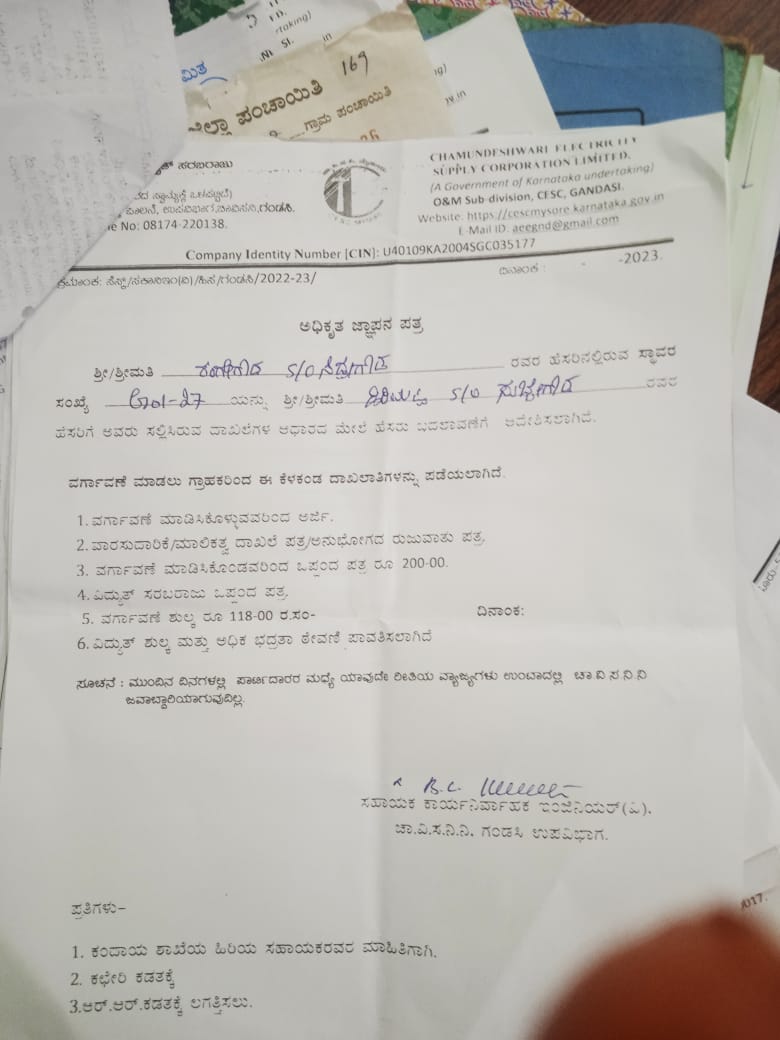 169
ಜಿಲ್ಲಾ ಪಂಚಾಯಿತಿ
ಗ್ರಾಮ ಪಂಚಾಯಿತಿ
ಸರಬರಾಜು
CHAMUNDESHWARI ELECTRICITY
SUPPLY CORPORATION LIMITED.
(A Government of Karnataka undertaking)
O&M Sub-division, CESC, GANDASI.
Website: https://cescmysore.karnataka.gov.in
E-Mail ID. aeegnd@gmail.com
ಪಾಲನೆ, ಉಪವಿಭಾಗ,ಚಾವಿಸನಿ,ಗಂಡಸಿ.
No: 08174-220138.
Company Identity Number [CIN]: U40109KA2004SGC035177
ಕ್ರಮಾಂಕ: /2022-23/ ದಿನಾಂಕ : - -2023.
ಅಧಿಕೃತ ಜ್ಞಾಪನ ಪತ್ರ
ಶ್ರೀ/ಶ್ರೀಮತಿ S/O ರವರ ಹೆಸರಿನಲ್ಲಿರುವ ಸ್ಥಾವರ
ಸಂಖ್ಯೆ ಯನ್ನು ಶ್ರೀ/ಶ್ರೀಮತಿ S/O ರವರ
ಹೆಸರಿಗೆ ಅವರು ಸಲ್ಲಿಸಿರುವ ದಾಖಲೆಗಳ ಆಧಾರದ ಮೇಲೆ ಹೆಸರು ಬದಲಾವಣೆಗೆ ಆದೇಶಿಸಲಾಗಿದೆ.
ವರ್ಗಾವಣೆ ಮಾಡಲು ಗ್ರಾಹಕರಿಂದ ಈ ಕೆಳಕಂಡ ದಾಖಲಾತಿಗಳನ್ನು ಪಡೆಯಲಾಗಿದೆ.
1. ವರ್ಗಾವಣೆ ಮಾಡಿಸಿಕೊಳ್ಳುವವರಿಂದ ಅರ್ಜಿ.
2. ವಾರಸುದಾರಿಕೆ/ಮಾಲಿಕತ್ವ ದಾಖಲೆ ಪತ್ರ/ಅನುಭೋಗದ ರುಜುವಾತು ಪತ್ರ.
3. ವರ್ಗಾವಣೆ ಮಾಡಿಸಿಕೊಂಡವರಿಂದ ಒಪ್ಪಂದ ಪತ್ರ ರೂ 200-00.
4. ವಿದ್ಯುತ್ ಸರಬರಾಜು ಒಪ್ಪಂದ ಪತ್ರ.
5. ವರ್ಗಾವಣೆ ಶುಲ್ಕ ರೂ 118-00 ರ.ಸಂ- ದಿನಾಂಕ:
6. ವಿದ್ಯುತ್ ಶುಲ್ಕ ಮತ್ತು ಅಧಿಕ ಭದ್ರತಾ ಠೇವಣಿ ಪಾವತಿಸಲಾಗಿದೆ
ಸೂಚನೆ : ಮುಂದಿನ ದಿನಗಳಲ್ಲಿ ಪಾರ್ಟಿದಾರರ ಮಧ್ಯೆ ಯಾವುದೇ ರೀತಿಯ ವ್ಯಾಜ್ಯಗಳು ಉಂಟಾದಲ್ಲಿ ಚಾ ವಿ ಸ ನಿ ನಿ
ಜವಾಬ್ದಾರಿಯಾಗುವುದಿಲ್ಲ.
B.C.
ಸಹಾಯಕ ಕಾರ್ಯನಿರ್ವಾಹಕ ಇಂಜಿನಿಯರ್(ವಿ).
ಚಾ.ವಿ.ಸ.ನಿ.ನಿ. ಗಂಡಸಿ ಉಪವಿಭಾಗ.
ಪ್ರತಿಗಳು-
1. ಕಂದಾಯ ಶಾಖೆಯ ಹಿರಿಯ ಸಹಾಯಕರವರ ಮಾಹಿತಿಗಾಗಿ.
2. ಕಛೇರಿ ಕಡತಕ್ಕೆ
3.ಆರ್.ಆರ್.ಕಡತಕ್ಕೆ ಲಗತ್ತಿಸಲು.